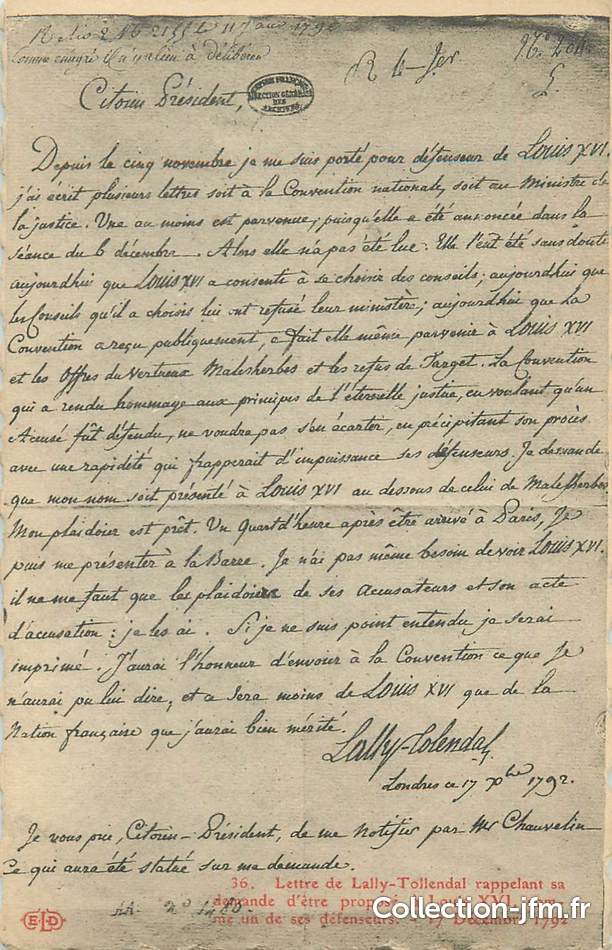 Comme émigré il n'y a lieu à délibérer
Citoien Président,
ARCHIVES
Depuis le cinq novembre je me suis porté pour défenseur de Louis XVI.
j'ai écrit plusieurs lettres soit à la Convention nationale, soit au Ministre de
la justice. Une au moins est parvenue, puisqu'elle a été annoncée dans la
séance du 6 décembre. Alors elle n'a pas été lue. Elle l'eut été sans doute
aujourdhui que Louis XVI a consenti à se choisir des conseils; aujourdhui que
les Conseils qu'il a choisis lui ont refusé leur ministère; aujourdhui que la
Convention a reçu publiquement, a fait elle même parvenir à Louis XVI
et les Offres du Vertueux Malesherbes et les refus de Target. La Convention
qui a rendu hommage aux principes de l'éternelle justice, en voulant qu'un
Accusé fût défendu, ne voudra pas s'en écarter, en précipitant son procès
avec une rapidité qui frapperait d'impuissance ses défenseurs. Je demande
que mon nom soit présenté à Louis XVI au dessous de celui de Malesherbes
Mon plaidoier est prêt. Un quart d'heure après être arrivé à Paris, Je
puis me présenter à la Barre. Je n'ai pas même besoin de voir Louis XVI.
il ne me faut que les plaidoiers de ses accusateurs et son acte
d'accusation : je les ai. Si je ne suis point entendu je serai
imprimé. J'aurai l'honneur d'envoier à la Convention ce que Je
n'aurai pu lui dire, et ce sera moins de Louis XVI que de la
Nation française que j'aurai bien mérité.
Lally-Tolendal
Londres ce 17 Xbre 1792.
Je vous prie, Citoien-Président, de me notifier par Mr Chauvelin
Ce qui aura été statué sur ma demande.
36. Lettre de Lally-Tollendal rappelant sa
demande d'être proposé à Louis XVI com-
me un de ses défenseurs. 17 Décembre 1792
ELD
Collection-jfm.fr